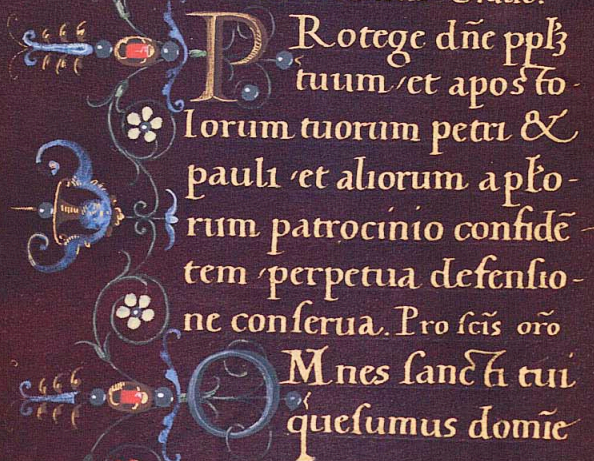 PRotege dñe pplꝫ
tuum, et aposto-
lorum tuorum petri &
pauli, et aliorum apło-
rum patrocinio confidē-
tem, perpetua defensio-
ne conſerua. Pro ſcīs orō
OMnes ſancti tui
queſumus domīe